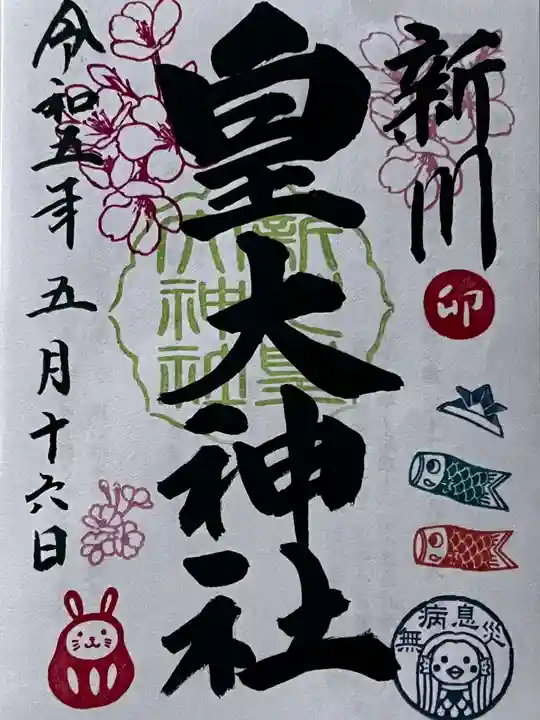 新川
皇大神社
令和五年五月十六日
卯
新川皇
大神社
無病息災